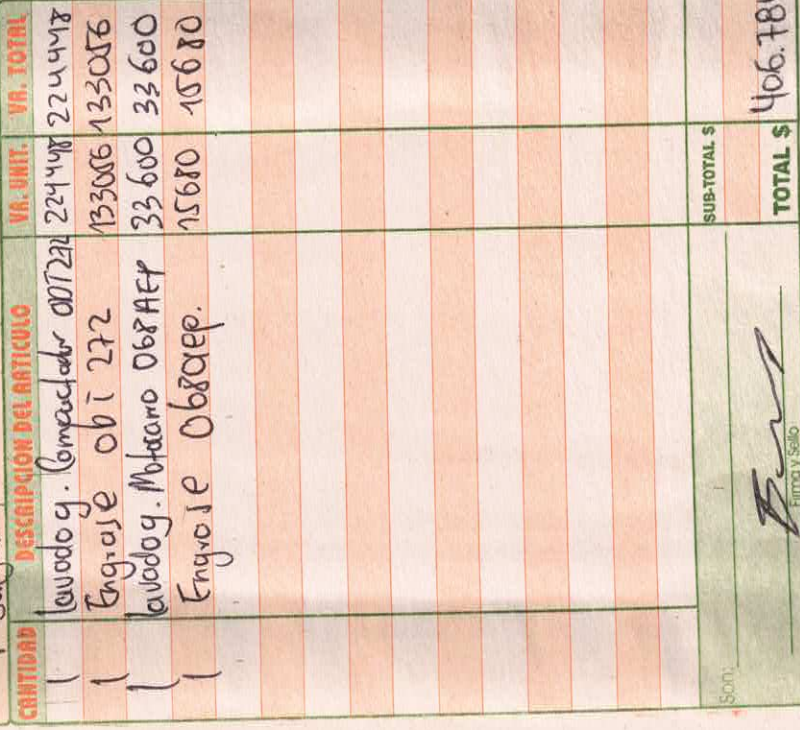 CANTIDAD DESCRIPCIÓN DEL ARTICULO VR. UNIT. VR. TOTAL
1 lavado y. Compactador ODT272 224448 224448
1 Engrase odt 272 133056 133056
1 lavado y. Motocarro 068AEP 33600 33600
1 Engrase 068aep. 15680 15680
SUB-TOTAL $
Son:
TOTAL $ 406.784
Firma y Sello